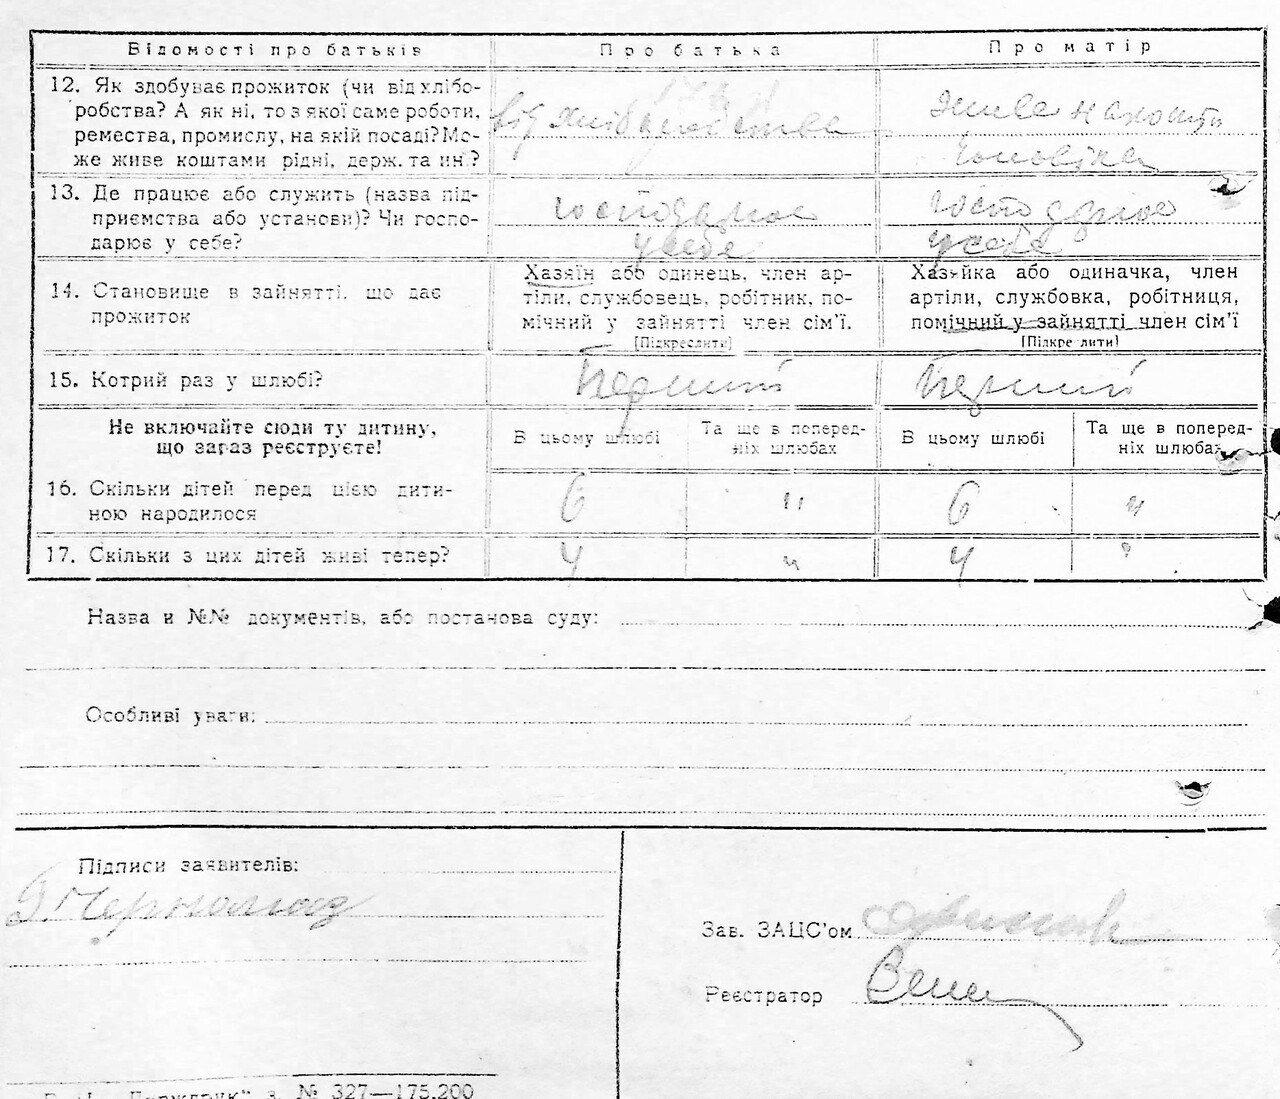 Відомості про батьків
Про батька
Про матір
12. Як здобуває прожиток (чи від хлібо-
робства? А як ні, то з якої саме роботи,
ремества, промислу, на якій посаді? Мо-
же живе коштами рідні, держ. та ин.?
від хліборобства
живе на кошти
чоловіка
13. Де працює або служить (назва під-
приємства або установи)? Чи госпо-
дарює у себе?
Господарює
у себе
господарює
у себе
14. Становище в зайнятті, що дає
прожиток
Хазяїн або одинець, член ар-
тіли, службовець, робітник, по-
мічний у зайнятті член сім’ї.
[Підкреслити]
Хазяйка або одиначка, член
артіли, службовка, робітниця,
помічний у зайнятті член сім’ї
[Підкре лити]
15. Котрий раз у шлюбі?
Перший
Перший
Не включайте сюди ту дитину,
що зараз реєструєте!
В цьому шлюбі
Та ще в поперед-
ніх шлюбах
В цьому шлюбі
Та ще в поперед-
ніх шлюбах
16. Скільки дітей перед цією дити-
ною народилося
6
"
6
"
17. Скільки з цих дітей живі тепер?
4
"
4
"
Назва и №№ документів, або постанова суду:
Особливі уваги:
Підписи заявителів:
Зав. ЗАЦС’ом
Реєстратор
№ 327—175.200